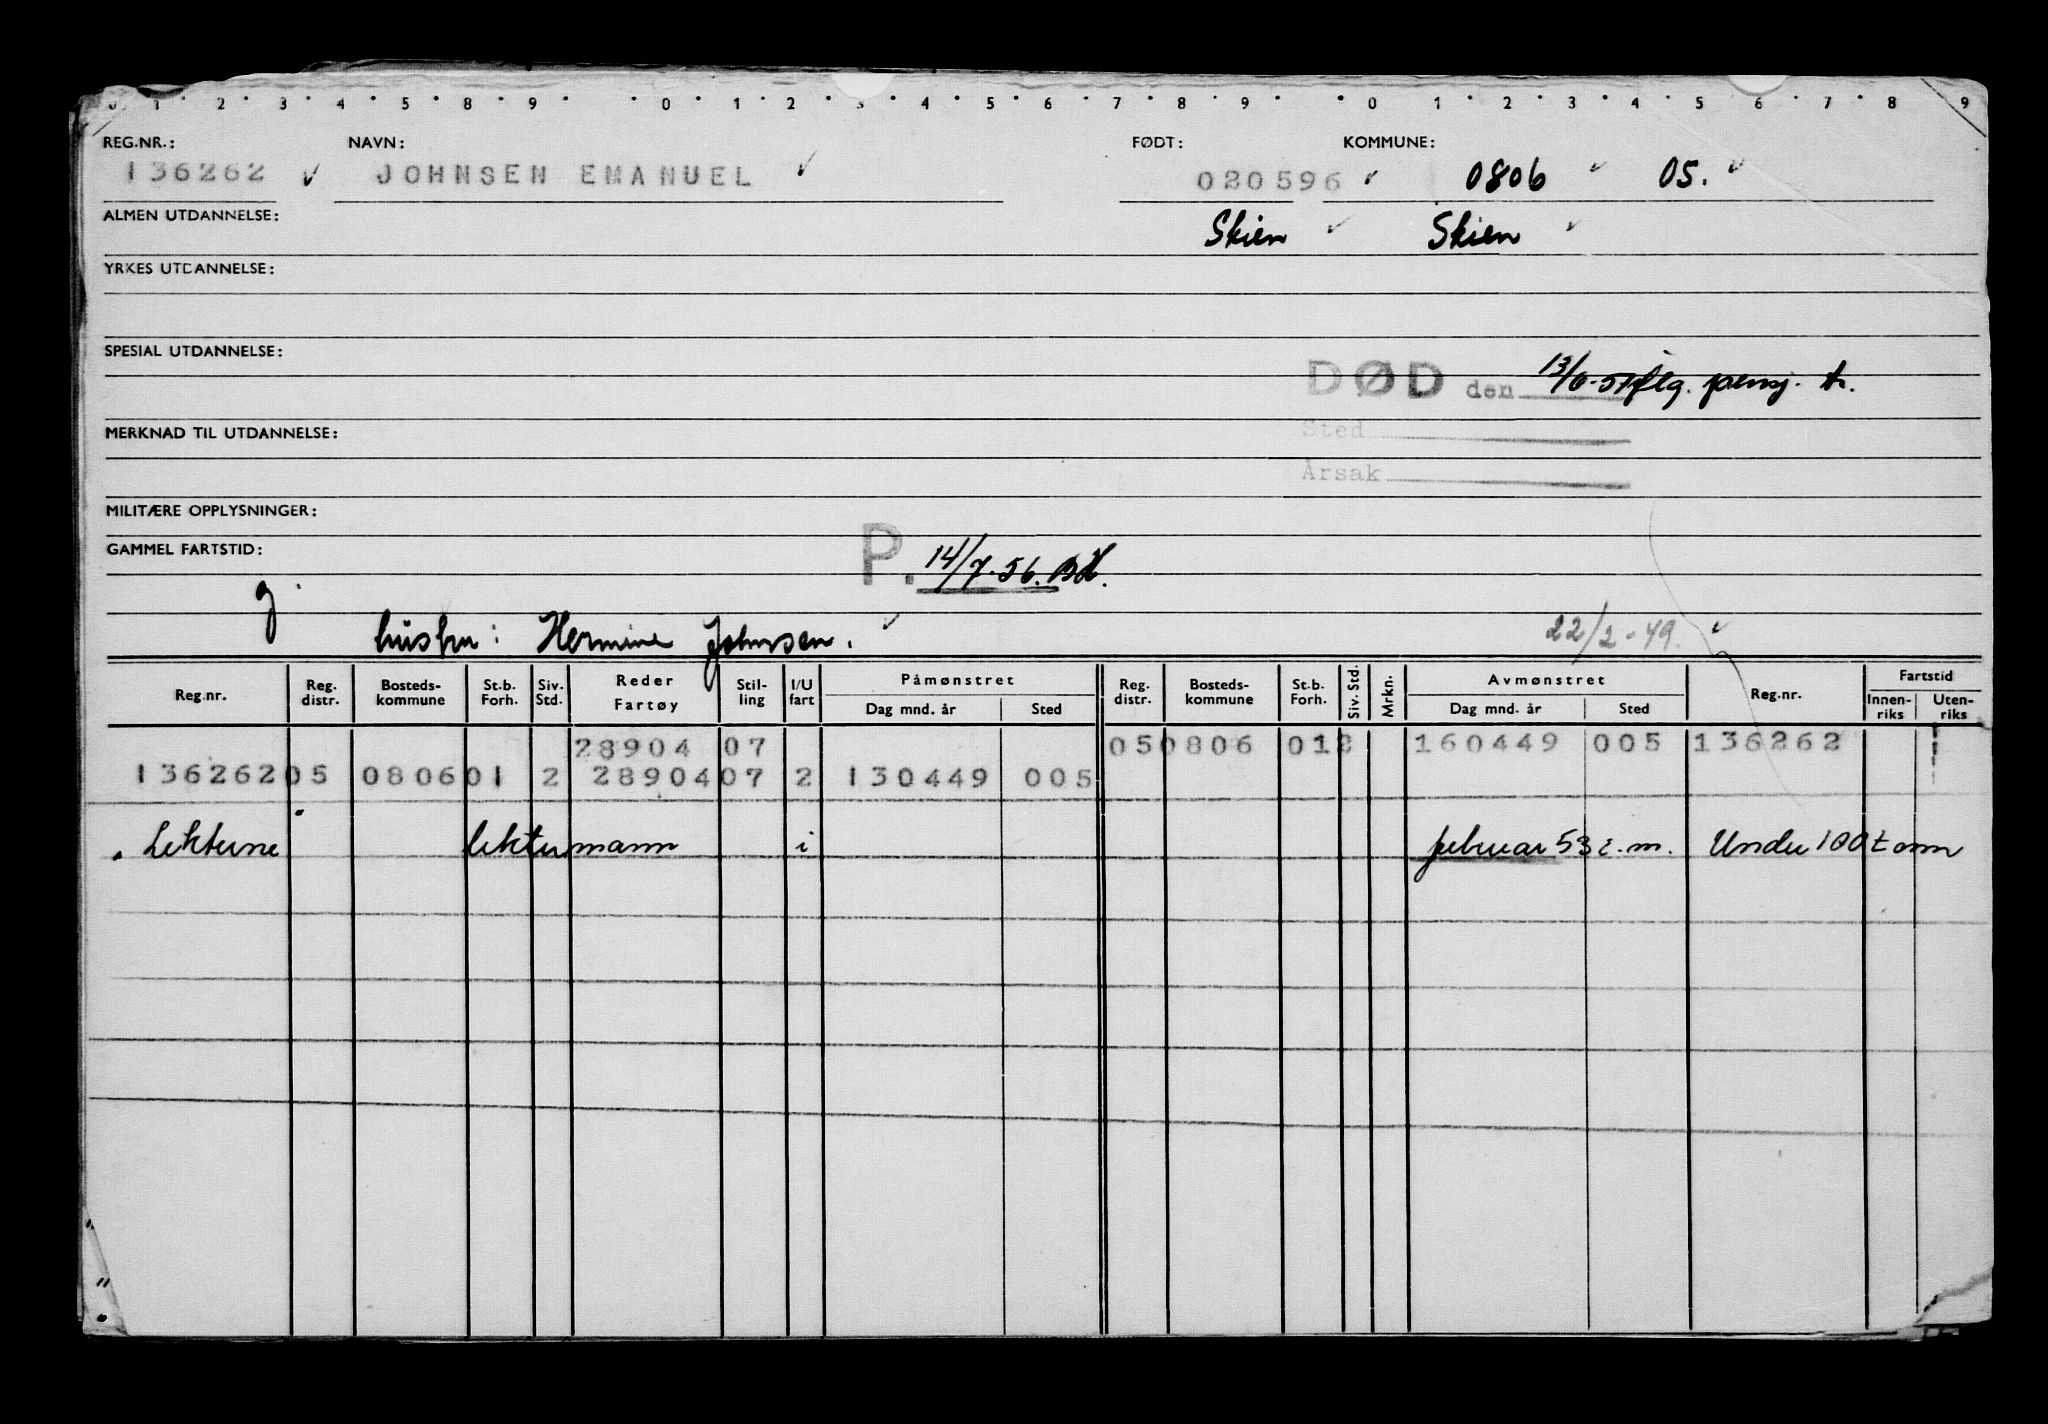 0 1 2 3 4 5 8 9 0 1 2 3 4 5 6 7 8 9 0 1 2 3 4 5 6 7 8 9
REG.NR.: NAVN: FØDT: KOMMUNE:
136262 JOHNSEN EMANUEL 020596 0806 05.
ALMEN UTDANNELSE: Skien Skien
YRKES UTDANNELSE:
SPESIAL UTDANNELSE:
DØD den flg. pensj. tr.
MERKNAD TIL UTDANNELSE:
Sted
Årsak
MILITÆRE OPPLYSNINGER:
GAMMEL FARTSTID: P. 14/7-56.
g.
hustru: Hermine Johnsen. 22/2-49.
Reg.nr. Reg. distr. Bosteds- kommune St.b. Forh. Siv. Std. Reder Fartøy Stil- ling I/U fart Påmønstret Dag mnd. år Sted Reg. distr. Bosteds- kommune St.b. Forh. Siv. Std. Mrkn. Avmønstret Dag mnd. år Sted Reg.nr. Fartstid Innen- riks Uten- riks
28904 07 05 0806 01 2 160449 005 136262
136262 05 0806 01 2 28904 07 2 130449 005
Lekterne lektermann i februar 53 e.m. Under 100 tonn